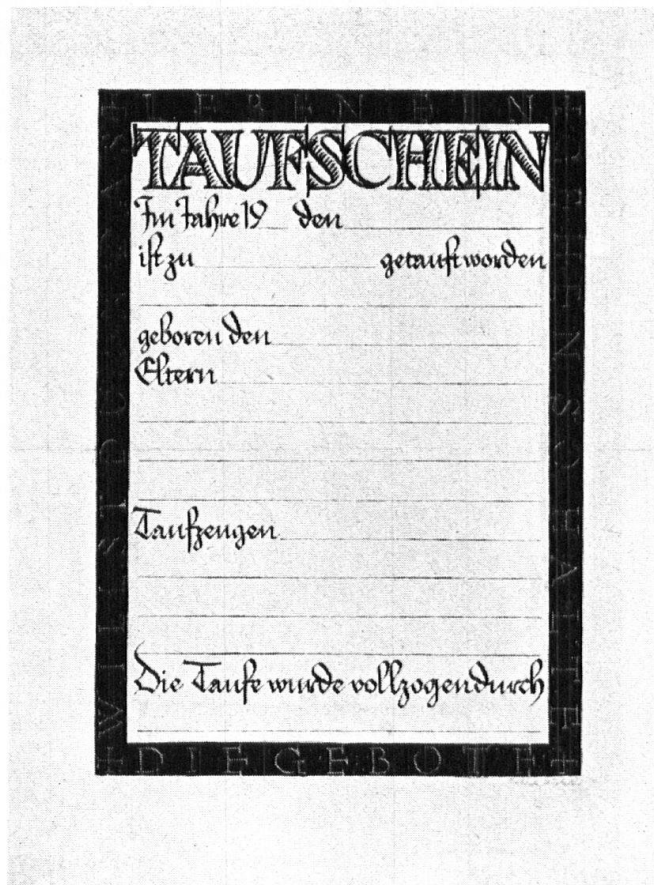 WILLST DU
+ LEBEN EIN +
GEHEN SO HALTE
+ DIE GEBOTE +
TAUFSCHEIN
Im Jahre 19 den
ist zu getauft worden
geboren den
Eltern
Taufzeugen
Die Taufe wurde vollzogen durch